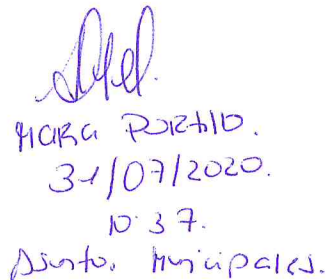 Mara Portillo.
31/07/2020.
10:37.
Asunto. Municipales.